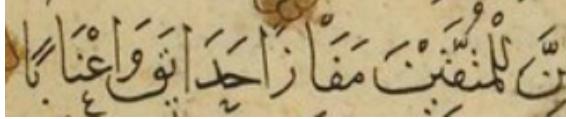 نَّ لِلْمُتَّقِيْنَ مَفَازًا حَدَایِٕقَ وَاَعْنَابًا